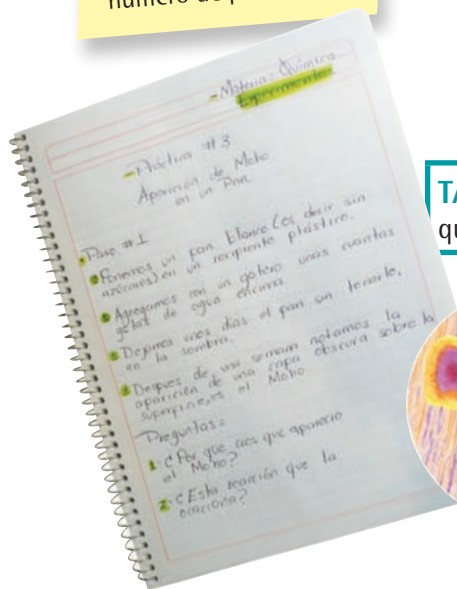 número de p
- Materia: Química
Experimentos
- Práctica #3
Aparición de Moho
en un Pan
Paso #1
Ponemos un pan blanco (es decir sin
azúcares) en un recipiente plástico.
Agregamos con un gotero unas cuantas
gotas de agua encima.
Dejamos unos días el pan sin tocarlo,
en la sombra.
Despues de una semana notamos la
aparición de una capa obscura sobre la
superficie, es el Moho
Preguntas:
1- ¿Por que crees que aparecio
el Moho?
2- ¿Esta reacción que la
ocaciona?
TA
qu